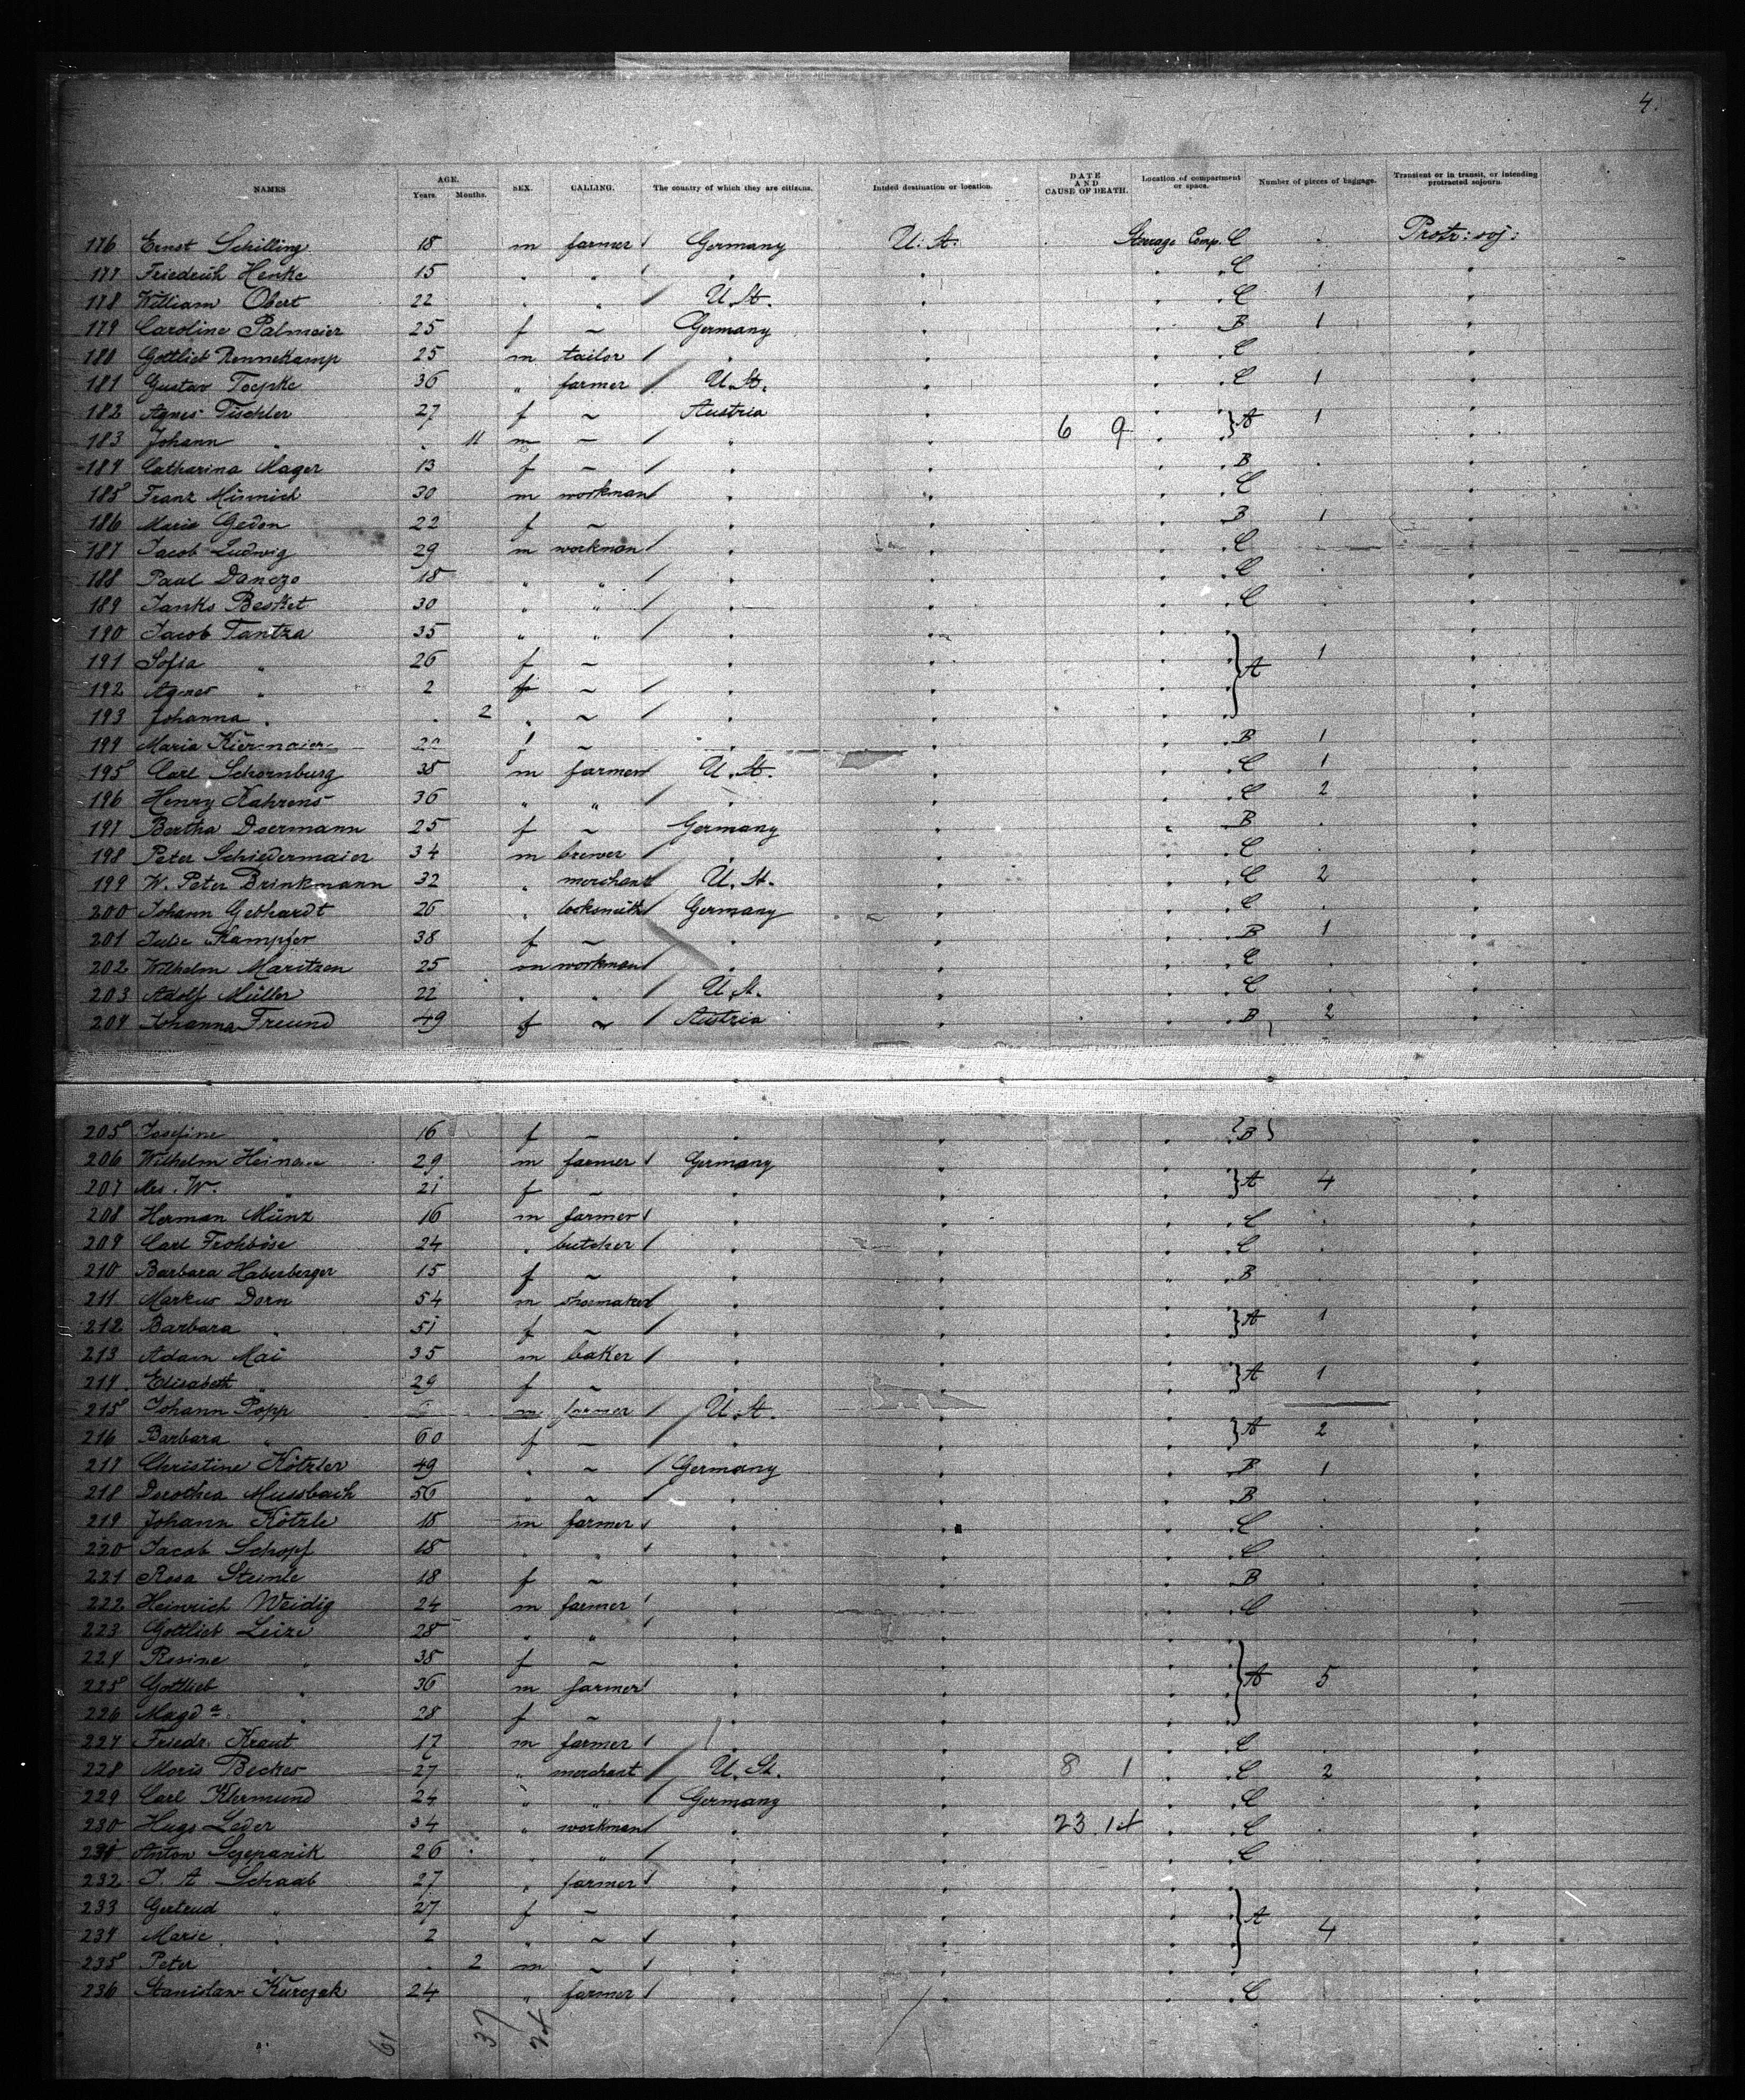 4.
NAMES AGE. Years. Months. SEX. CALLING. The country of which they are citizens. Intded destination or location. DATE AND CAUSE OF DEATH. Location of compartment or space. Number of pieces of baggage. Transient or in transit, or intending protracted sojourn.
176 Ernst Schilling 18 m farmer Germany U. St. Steerage Comp. C Protr: soj:
177 Friedrich Henke 15 " " " " " C "
178 William Obert 22 " " U. St. " " C 1 "
179 Caroline Palmaier 25 f ~ Germany " " B 1 "
180 Gottlieb Rennekamp 25 m tailor " " " C "
181 Gustav Toepke 36 " farmer U. St. " " C 1 "
182 Agnes Tischler 27 f ~ Austria " " } A 1 "
183 Johann " 11 m ~ " " 6 9 " "
184 Catharina Mager 13 f ~ " " " B "
185 Franz Minnich 30 m workman " " " C "
186 Maria Gedon 22 f ~ " " " B 1 "
187 Jacob Ludwig 29 m workman " " " C "
188 Paul Danczo 18 " " " " " C "
189 Janks Besket 30 " " " " " C "
190 Jacob Tantza 35 " " " " " "
191 Sofia " 26 f ~ " " " } A 1 "
192 Agnes " 2 f ~ " " " "
193 Johanna " 2 " ~ " " " "
194 Maria Kiermaier f ~ " " " B 1 "
195 Carl Schornburg 35 m farmer U. St. " " C 1 "
196 Henry Kahrens 36 " " " " " C 2 "
197 Bertha Doermann 25 f ~ Germany " " B "
198 Peter Schiedermaier 34 m brewer " " " C "
199 W. Peter Brinkmann 32 " merchant U. St. " " C 2 "
200 Johann Gebhardt 26 " locksmith Germany " " C "
201 Julie Kampfer 38 f ~ " " " B 1 "
202 Wilhelm Maritzen 25 m workman " " " C "
203 Adolf Müller 22 " " U. St. " " C "
204 Johanna Freund 49 f ~ Austria " " B 2 "
205 Josefine " 16 f ~ " " " B "
206 Wilhelm 29 m farmer Germany " " "
207 Mrs. W. " 21 f ~ " " " } A 4 "
208 Herman Münz 16 m farmer " " " C "
209 Carl Frohböse 24 " butcher " " " C "
210 Barbara Haberberger 15 f ~ " " " B "
211 Markus Dorn 54 m shoemaker " " " "
212 Barbara " 51 f ~ " " " } A 1 "
213 Adam Mai 35 m baker " " " "
214 Elisabeth " 29 f ~ " " " } A 1 "
215 Johann Popp m farmer U. St. " " "
216 Barbara " 60 f ~ " " " } A 2 "
217 Christine Kötzler 49 " ~ Germany " " B 1 "
218 Dorothea Mussbach 56 " ~ " " " B "
219 Johann Kötzle 18 m farmer " " " C "
220 Jacob Schopf 18 " " " " " C "
221 Rosa Steinle 18 f ~ " " " B "
222 Heinrich Weidig 24 m farmer " " " C "
223 Gottlieb Leize 28 " " " " " "
224 Rosine " 38 f ~ " " " "
225 Gottlieb " 36 m farmer " " " } A 5 "
226 Magda " 28 f ~ " " " "
227 Friedr. Kraut 17 m farmer " " " C "
228 Moris Becker 27 " merchant U. St. " 8 1 " C 2 "
229 Carl Klermund 24 " " Germany " " C "
230 Hugo Leder 34 " workman " " 23 14 " C "
231 Anton Sczepanik 26 " " " " " C "
232 J. A. Schaab 27 " farmer " " " "
233 Gertrud " 27 f ~ " " " } A "
234 Marie " 2 " ~ " " " 4 "
235 Peter " 2 m ~ " " " "
236 Stanislaw Kurczak 24 " farmer " " " C "
61 37 24